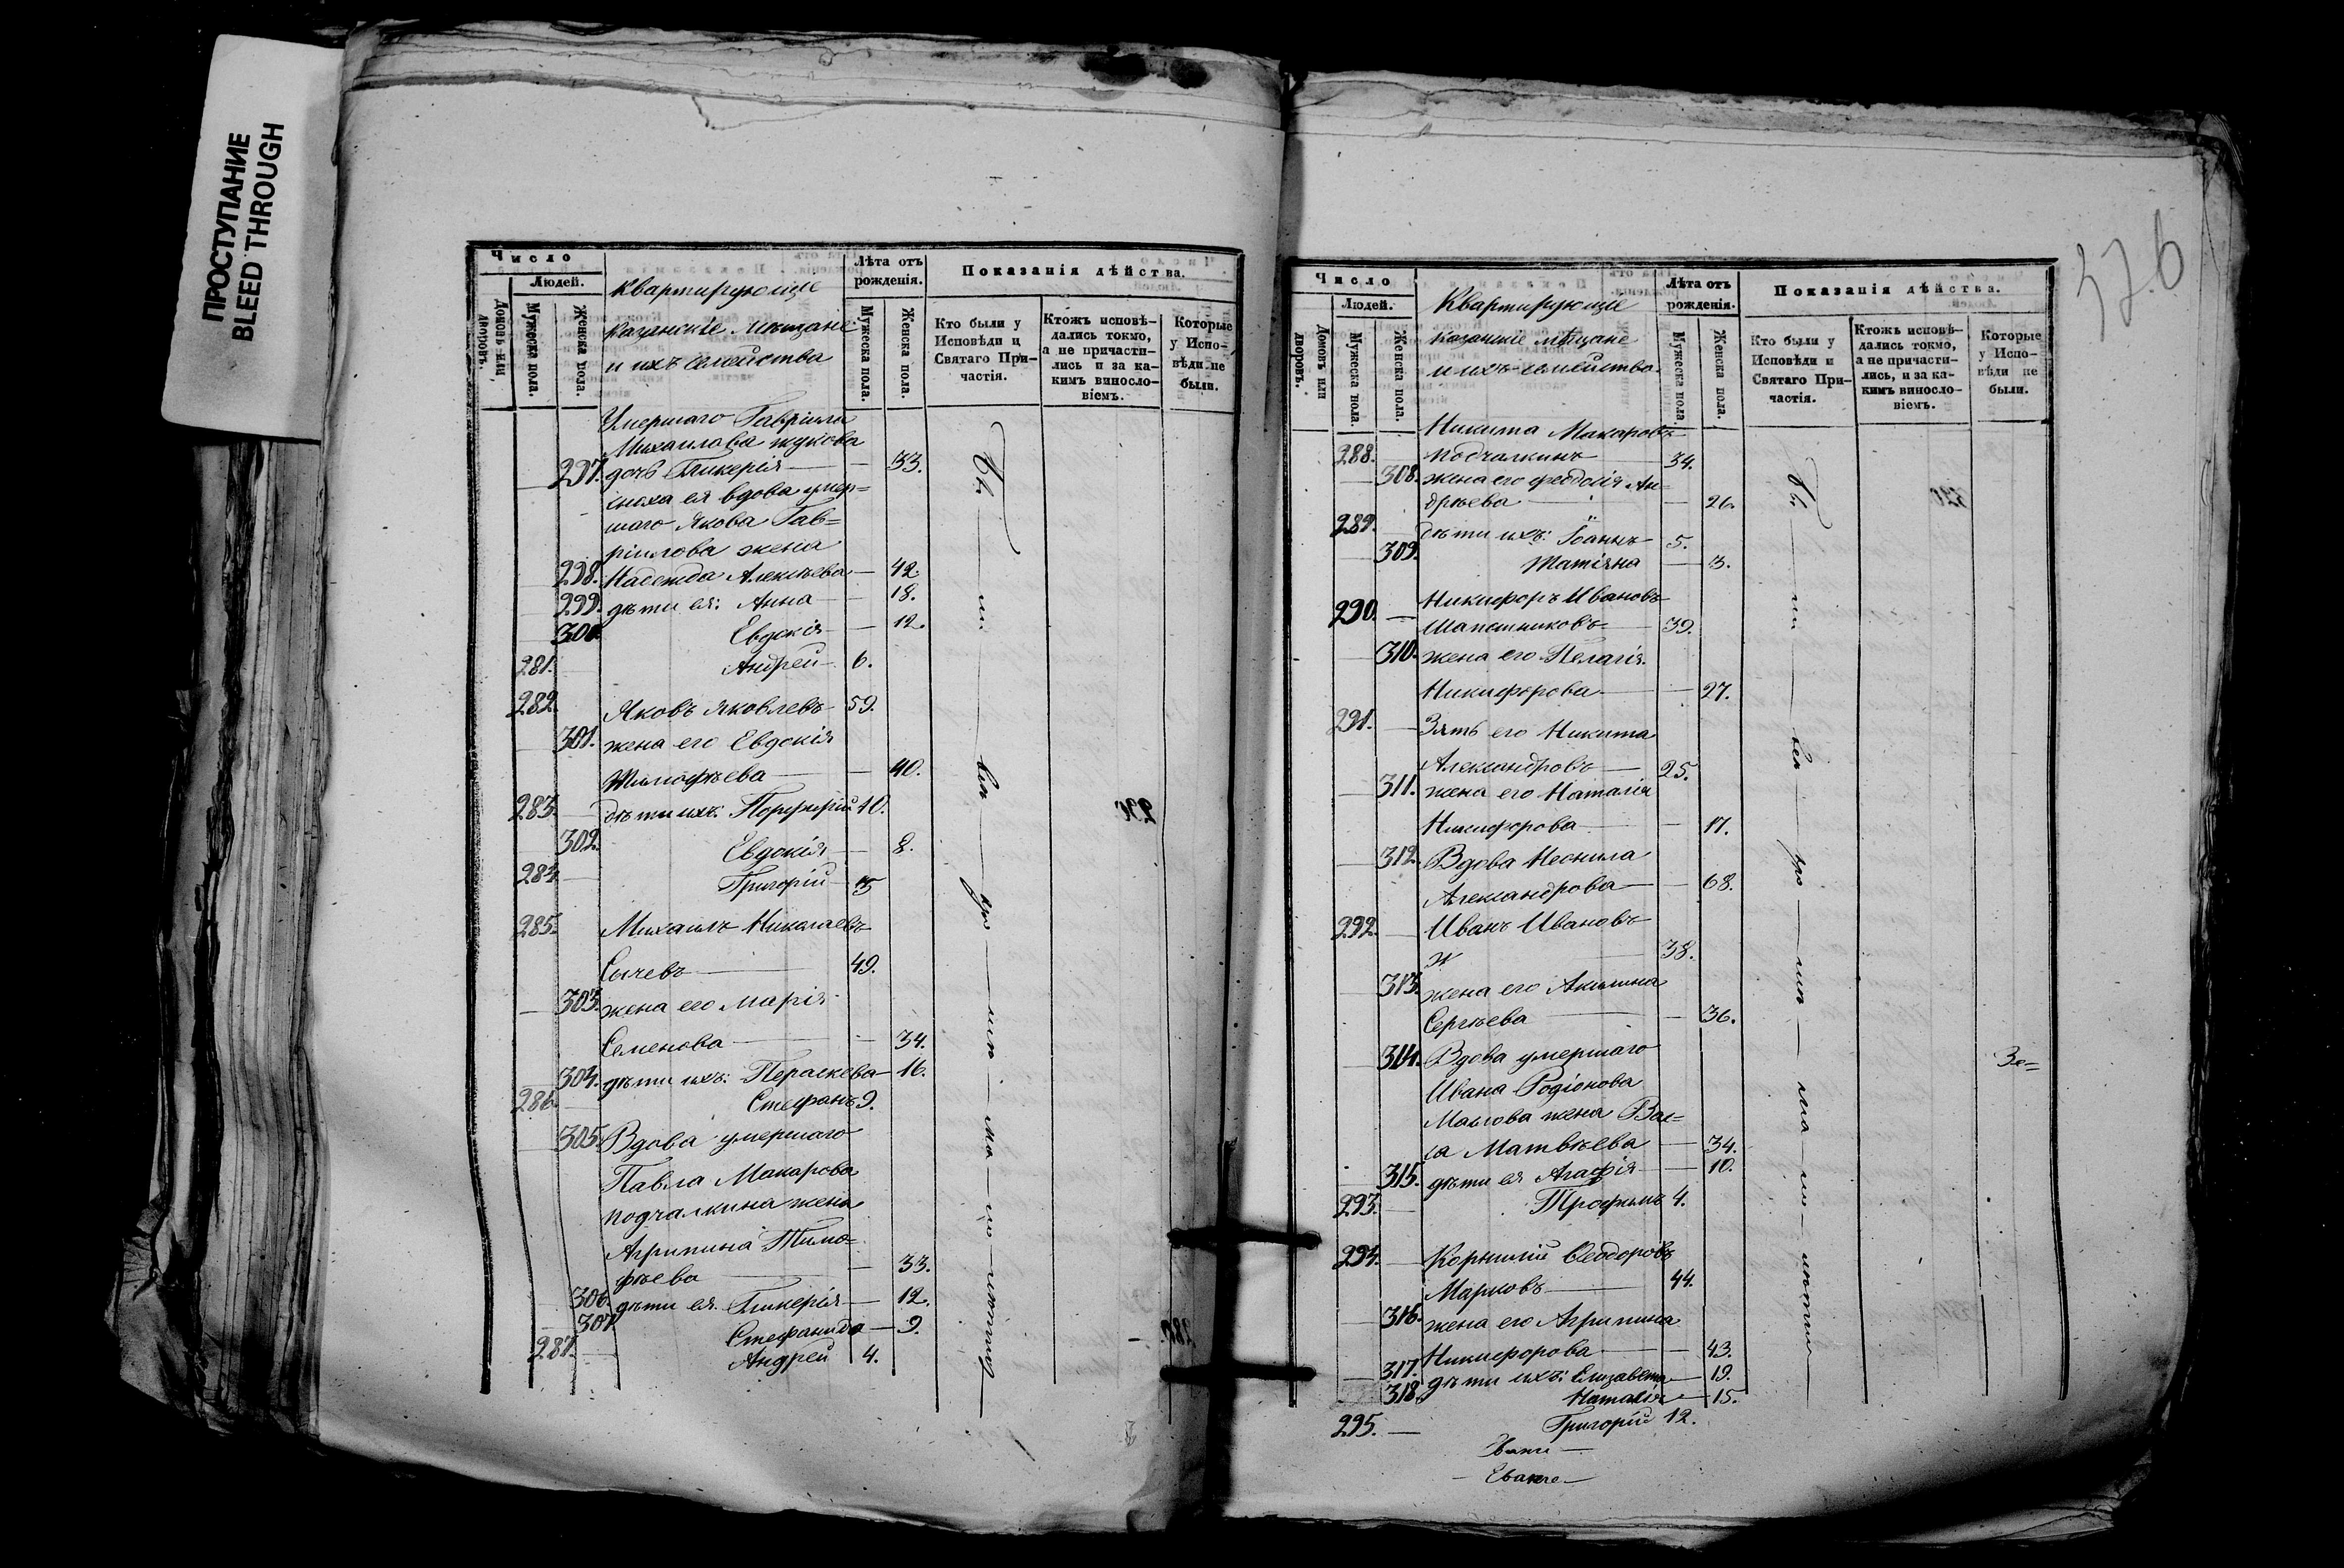 ПРОСТУПАНИЕ
BLEED THROUGH
Число
Людей.
Домовъ или дворовъ.
Мужеска пола.
Женска пола.
Квартирующіе
казанскіе мещане
и ихъ семейства
Лѣта отъ рожденія.
Мужеска пола.
Женска пола.
Показанія дѣйства.
Кто были у Исповѣди и Святаго Причастія.
Ктожъ исповѣдались токмо, а не причастились и за какимъ винословіемъ.
Которые у Исповѣди не были.
Умершаго Гавріила
Михаилова Жукова
297. дочь Гликерія — — 53.
сноха ея вдова умер=
шаго Якова Гав=
ріилова жена
298. Надежда Алексѣева — 42.
299. дѣти ея: Анна — — 18.
300. Евдокія — — 12.
281. Андрей — 6.
282. Яковъ Яковлевъ 59.
301. жена его Евдокія
Тимофѣева — — 40.
283. — дѣти ихъ: Порфирій 10.
302. Евдокія — — 8.
284. — Григорій — 5
285. Михаилъ Николаевъ
Сычевъ — 49.
303. жена его Марія
Семенова — — 34.
304. дѣти ихъ: Параскева — 16.
286. — Стефанъ 9.
305. Вдова умершаго
Павла Макарова
Подчалкина жена
Агрипина Тимо=
фѣева — — 33.
306. дѣти ея. Гликерія — 12.
307. Стефанида — 9.
287. — Андрей 4.
376
Число
Людей.
Домовъ или дворовъ.
Мужеска пола.
Женска пола.
Квартирующіе
казанскіе мѣщане
и ихъ семейства.
Лѣта отъ рожденія.
Мужеска пола.
Женска пола.
Показанія дѣйства.
Кто были у Исповѣди и Святаго Причастія.
Ктожъ исповѣдались токмо, а не причастились, и за какимъ винословіемъ.
Которые у Исповѣди не были.
Никита Макаровъ
288. — Подчалкинъ — 34.
308. жена его Феодосія Ан=
дрѣева — — 26.
289. — дѣти ихъ: Іоаннъ 5.
309. Татіяна — 3.
Никифоръ Ивановъ
290. — Шапошниковъ — 39.
310. жена его Пелагія
Никифорова — — 27.
291. — Зять его Никита
Александровъ — 25.
311. жена его Наталія
Никифорова — — 17.
312. Вдова Неонила
Александрова — — 68.
292. — Иванъ Ивановъ
38.
313. жена его Акилина
Сергѣева — — 36.
314. Вдова умершаго
Ивана Родіонова
Маслова жена Вас=
са Матвѣева — 34.
315. дѣти ея Агафія — — 10.
293. — Трофимъ 4.
294. — Корнилій Ѳеодоровъ
Марковъ — 44.
316. жена его Агрипина
Никифорова — — 43.
317. дѣти ихъ: Елизавета — 19.
318. Наталія — 15.
295. — Григорій 12.